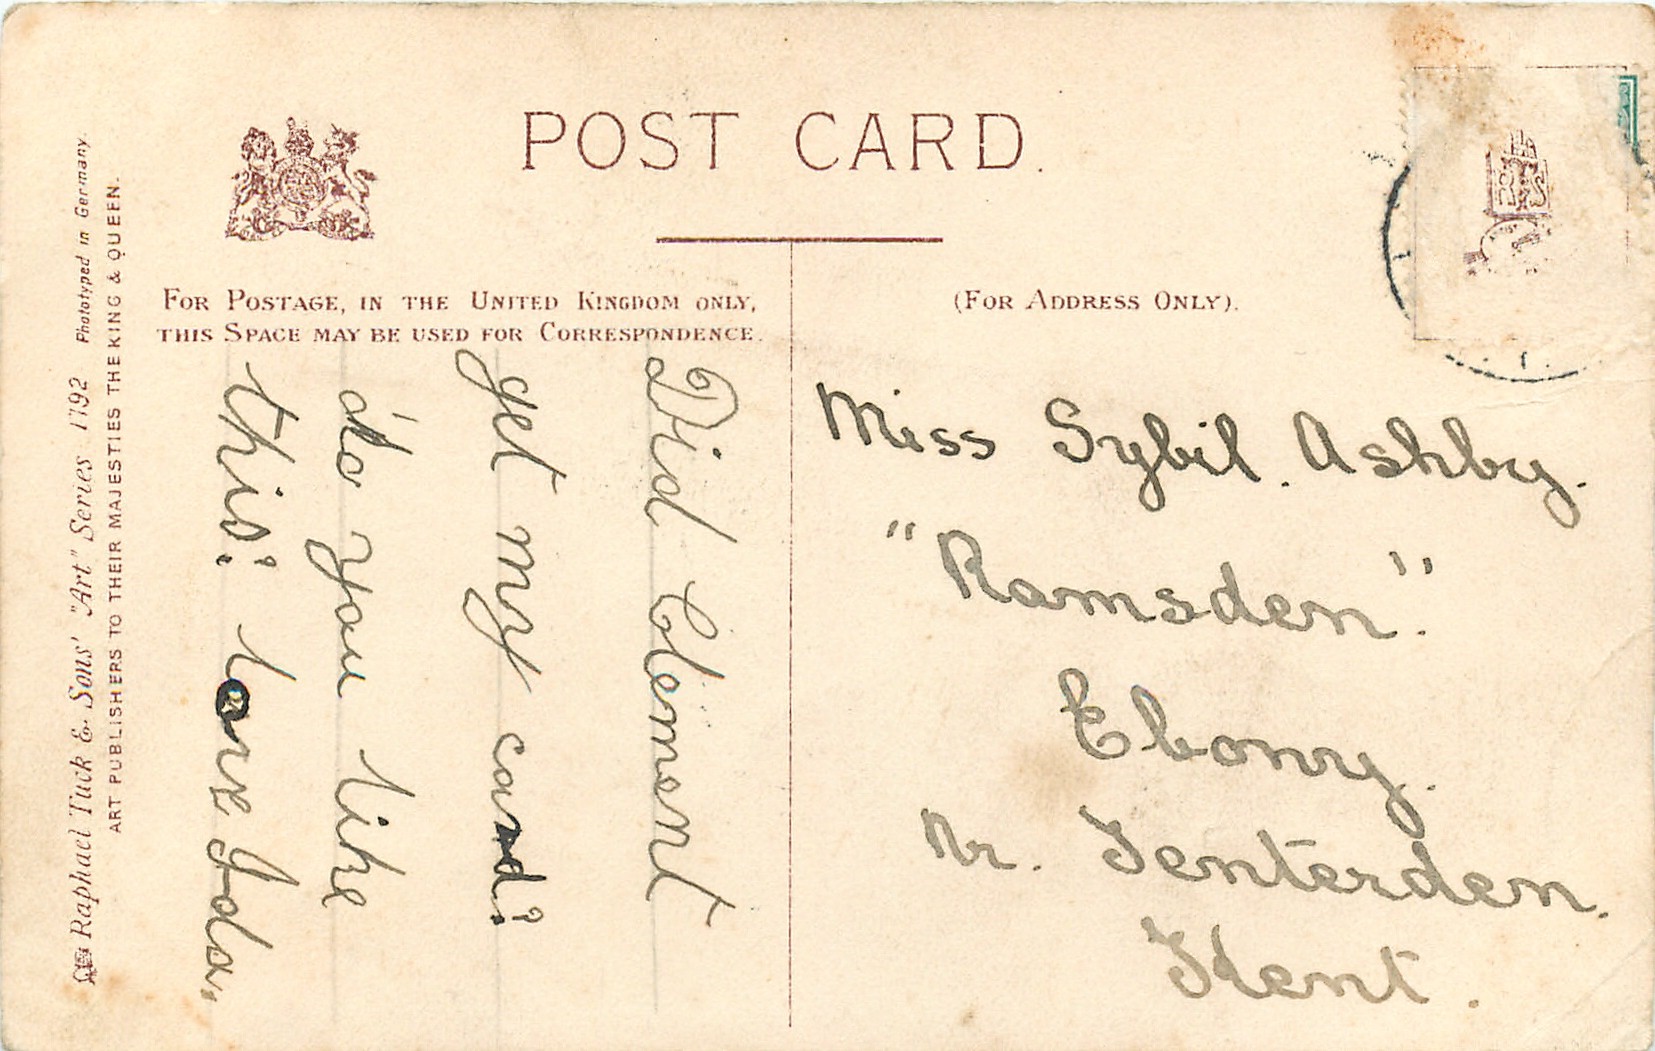 POST CARD.
FOR POSTAGE, IN THE UNITED KINGDOM ONLY,
THIS SPACE MAY BE USED FOR CORRESPONDENCE.
(FOR ADDRESS ONLY).
Did Clement
get my card?
do you like
this? love Ida.
Miss Sybil. Ashby.
"Ramsden".
Ebony.
Nr. Tenterden.
Kent.
Raphael Tuck & Sons' "Art" Series 1792 Phototyped in Germany.
ART PUBLISHERS TO THEIR MAJESTIES THE KING & QUEEN.